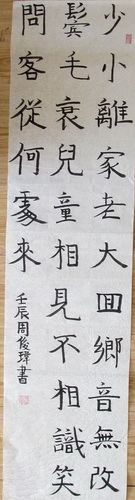 少小離家老大回鄉音無改
鬢毛衰兒童相見不相識笑
問客從何處來
壬辰周俊瑋書